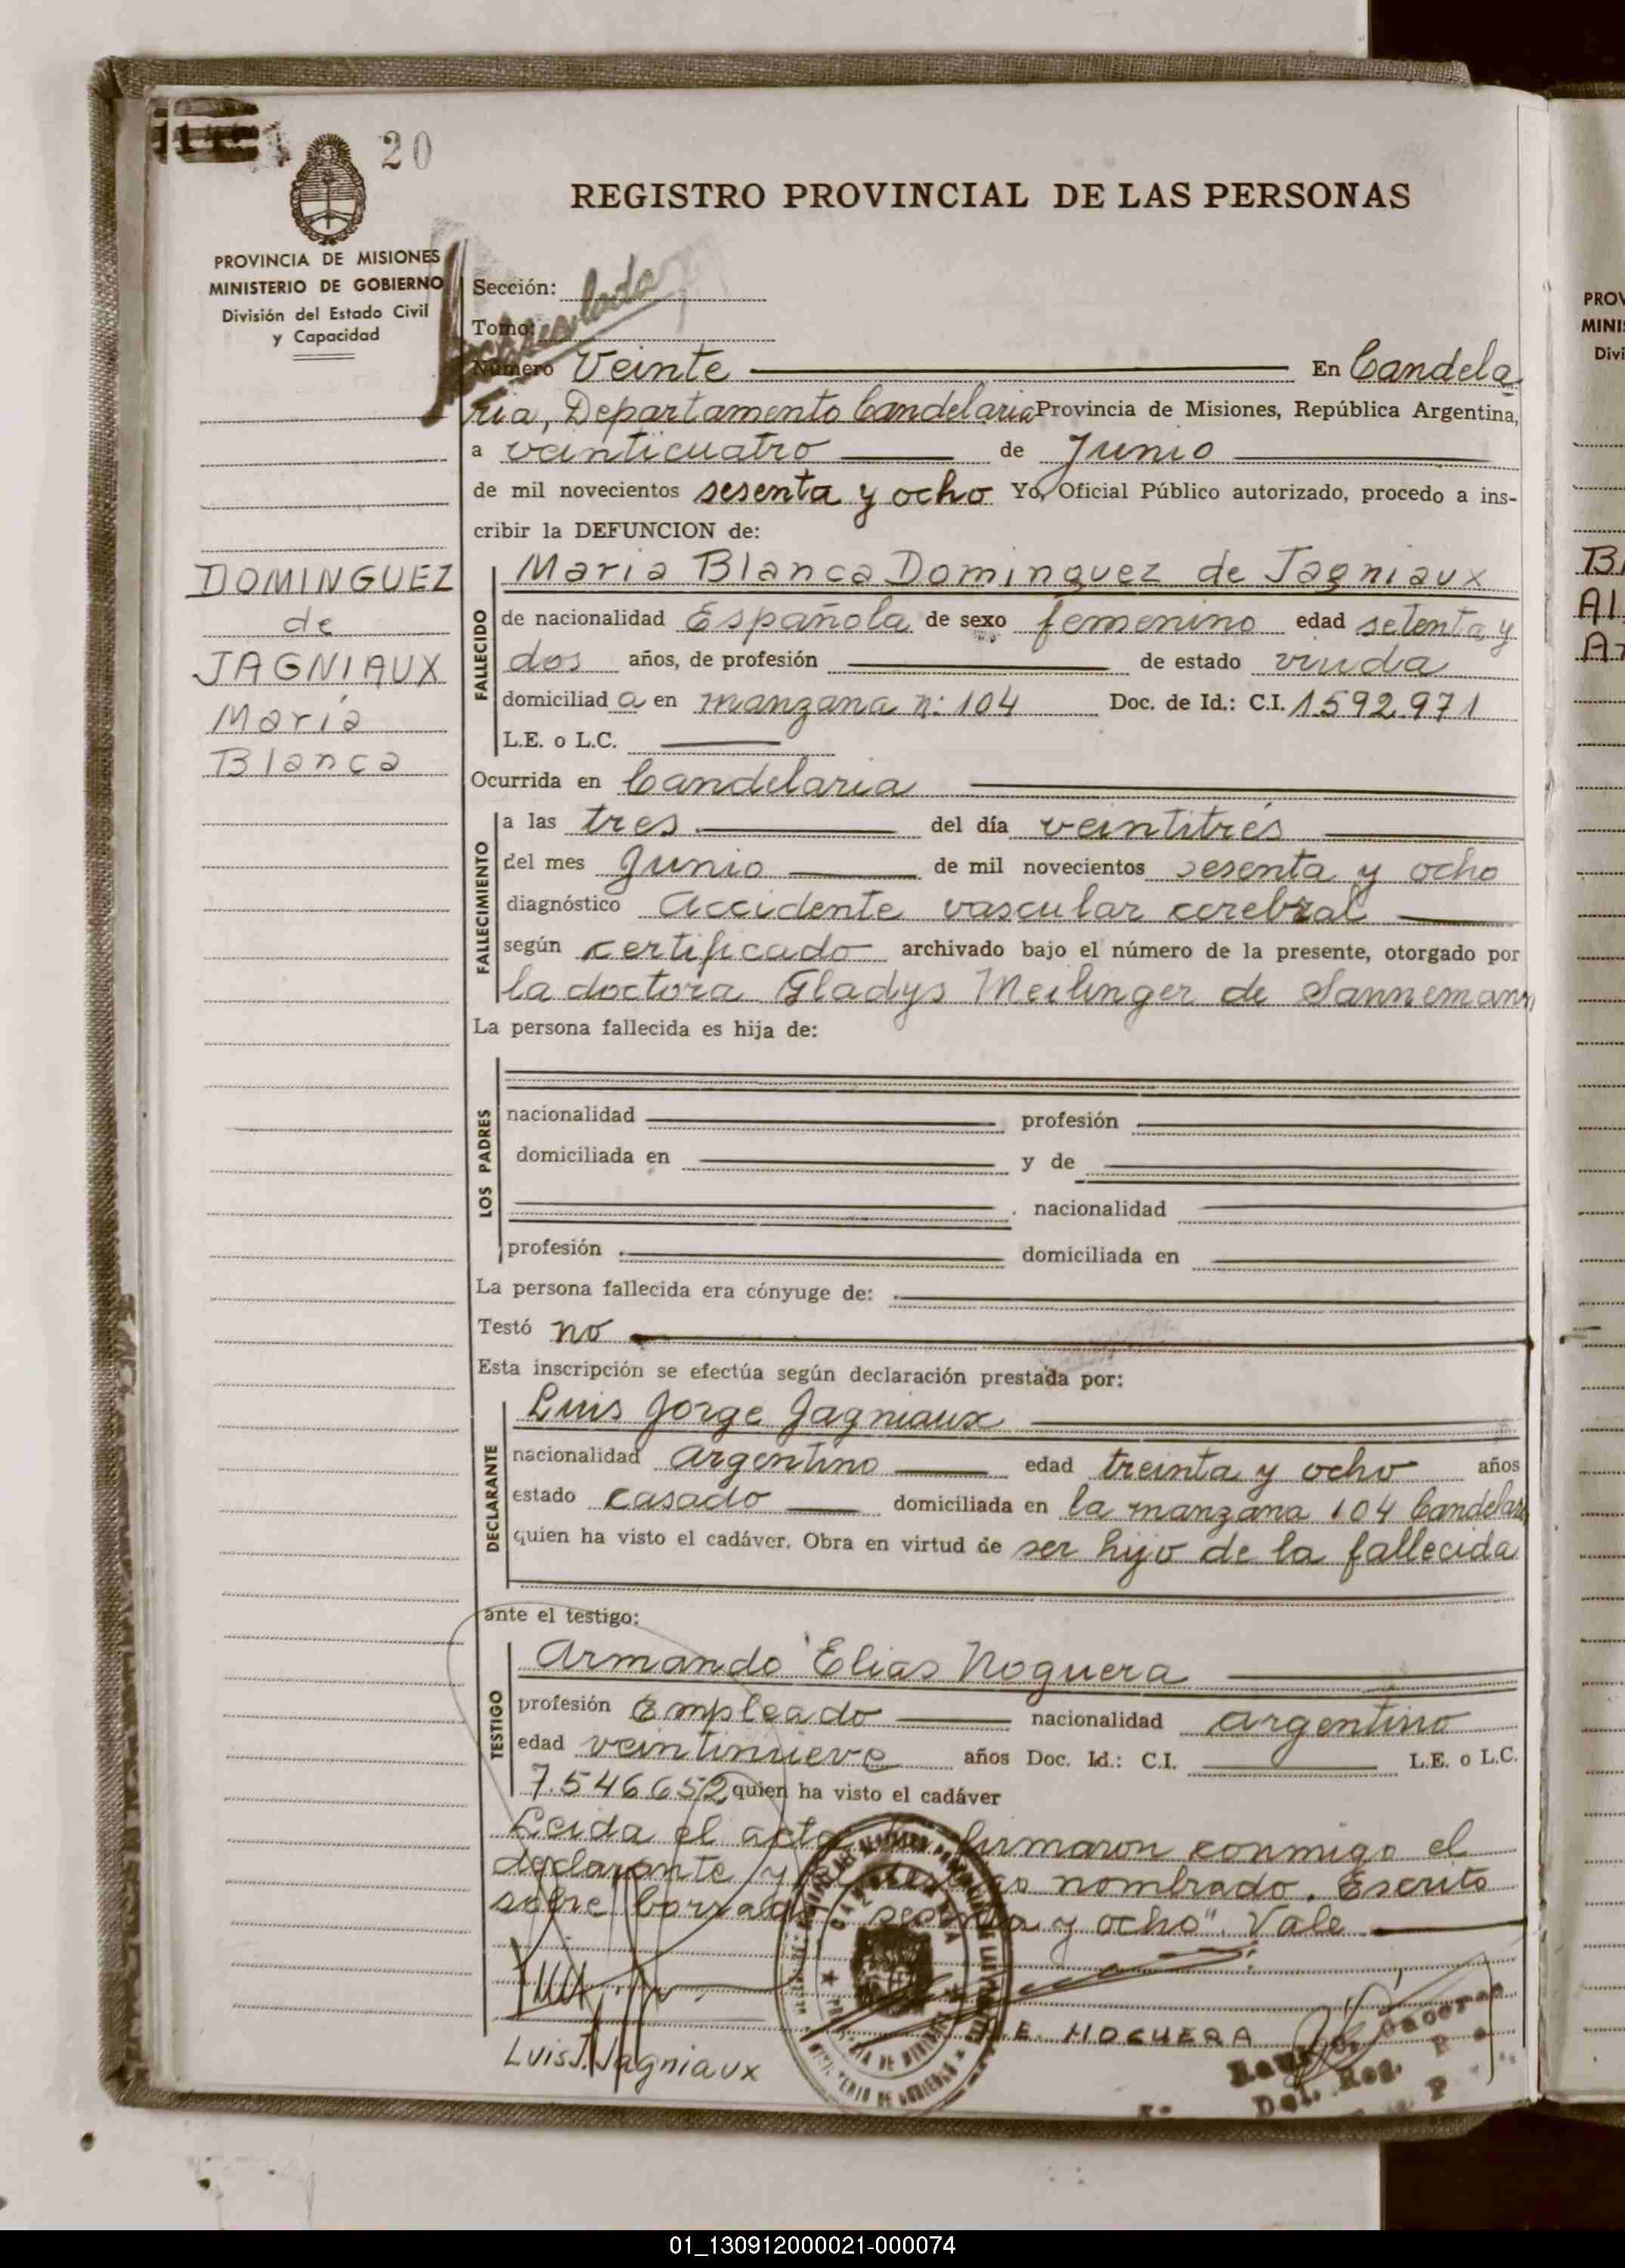 20
REGISTRO PROVINCIAL DE LAS PERSONAS
PROVINCIA DE MISIONES
MINISTERIO DE GOBIERNO
División del Estado Civil
y Capacidad
Sección:
Tomo:
Número Veinte En Candela
ria, Departamento Candelaria Provincia de Misiones, República Argentina,
a veinticuatro de Junio
de mil novecientos sesenta y ocho Yo, Oficial Público autorizado, procedo a ins-
cribir la DEFUNCION de:
DOMINGUEZ
de
JAGNIAUX
María
Blanca
FALLECIDO
Maria Blanca Dominguez de Jagniaux
de nacionalidad Española de sexo femenino edad setenta y
dos años, de profesión de estado viuda
domiciliad a en manzana n: 104 Doc. de Id.: C.I. 1.592.971
L.E. o L.C.
Ocurrida en Candelaria
FALLECIMIENTO
a las tres del día veintitrés
del mes Junio de mil novecientos sesenta y ocho
diagnóstico accidente vascular cerebral
según certificado archivado bajo el número de la presente, otorgado por
la doctora Gladys Meilinger de Sannemann
La persona fallecida es hija de:
LOS PADRES
nacionalidad profesión
domiciliada en y de
nacionalidad
profesión domiciliada en
La persona fallecida era cónyuge de:
Testó no
Esta inscripción se efectúa según declaración prestada por:
DECLARANTE
Luis Jorge Jagniaux
nacionalidad argentino edad treinta y ocho años
estado casado domiciliada en la manzana 104 Candelari
quien ha visto el cadáver. Obra en virtud de ser hijo de la fallecida
ante el testigo:
TESTIGO
Armando Elias Noguera
profesión Empleado nacionalidad argentino
edad veintinueve años Doc. Id.: C.I. L.E. o L.C.
7.546.652 quien ha visto el cadáver
Leida el acta firmaron conmigo el
declarante y nombrado. Escrito
sobre borrado "sesenta y ocho". Vale
E. NOGUERA
Luis J. Jagniaux
Del. Reg.
PROV
MINIS
Divi
01_130912000021-000074